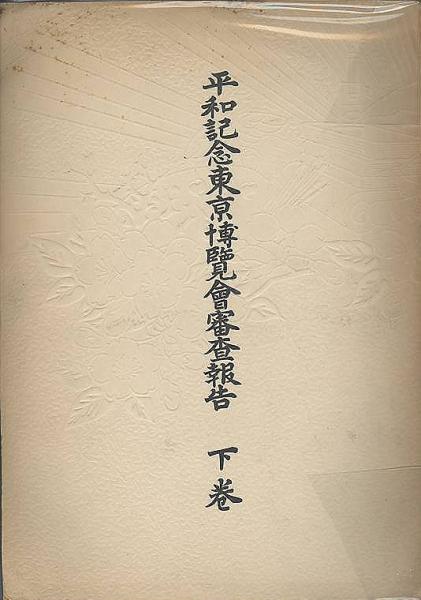 平和記念東亰博覽會審查報告 下卷